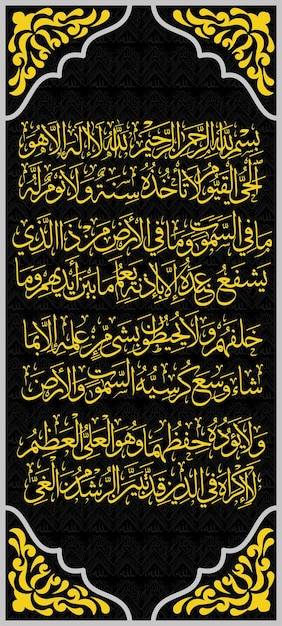 بسم الله الرحمن الرحيم الله لا إله إلا هو
الحي القيوم لا تأخذه سنة ولا نوم له
ما في السموت وما في الأرض من ذا الذي
يشفع عنده إلا بإذنه يعلم ما بين أيديهم وما
خلفهم ولا يحيطون بشيء من علمه إلا بما
شاء وسع كرسيه السموت والأرض
ولا يؤوده حفظهما وهو العلي العظيم
لا إكراه في الدين قد تبين الرشد من الغي